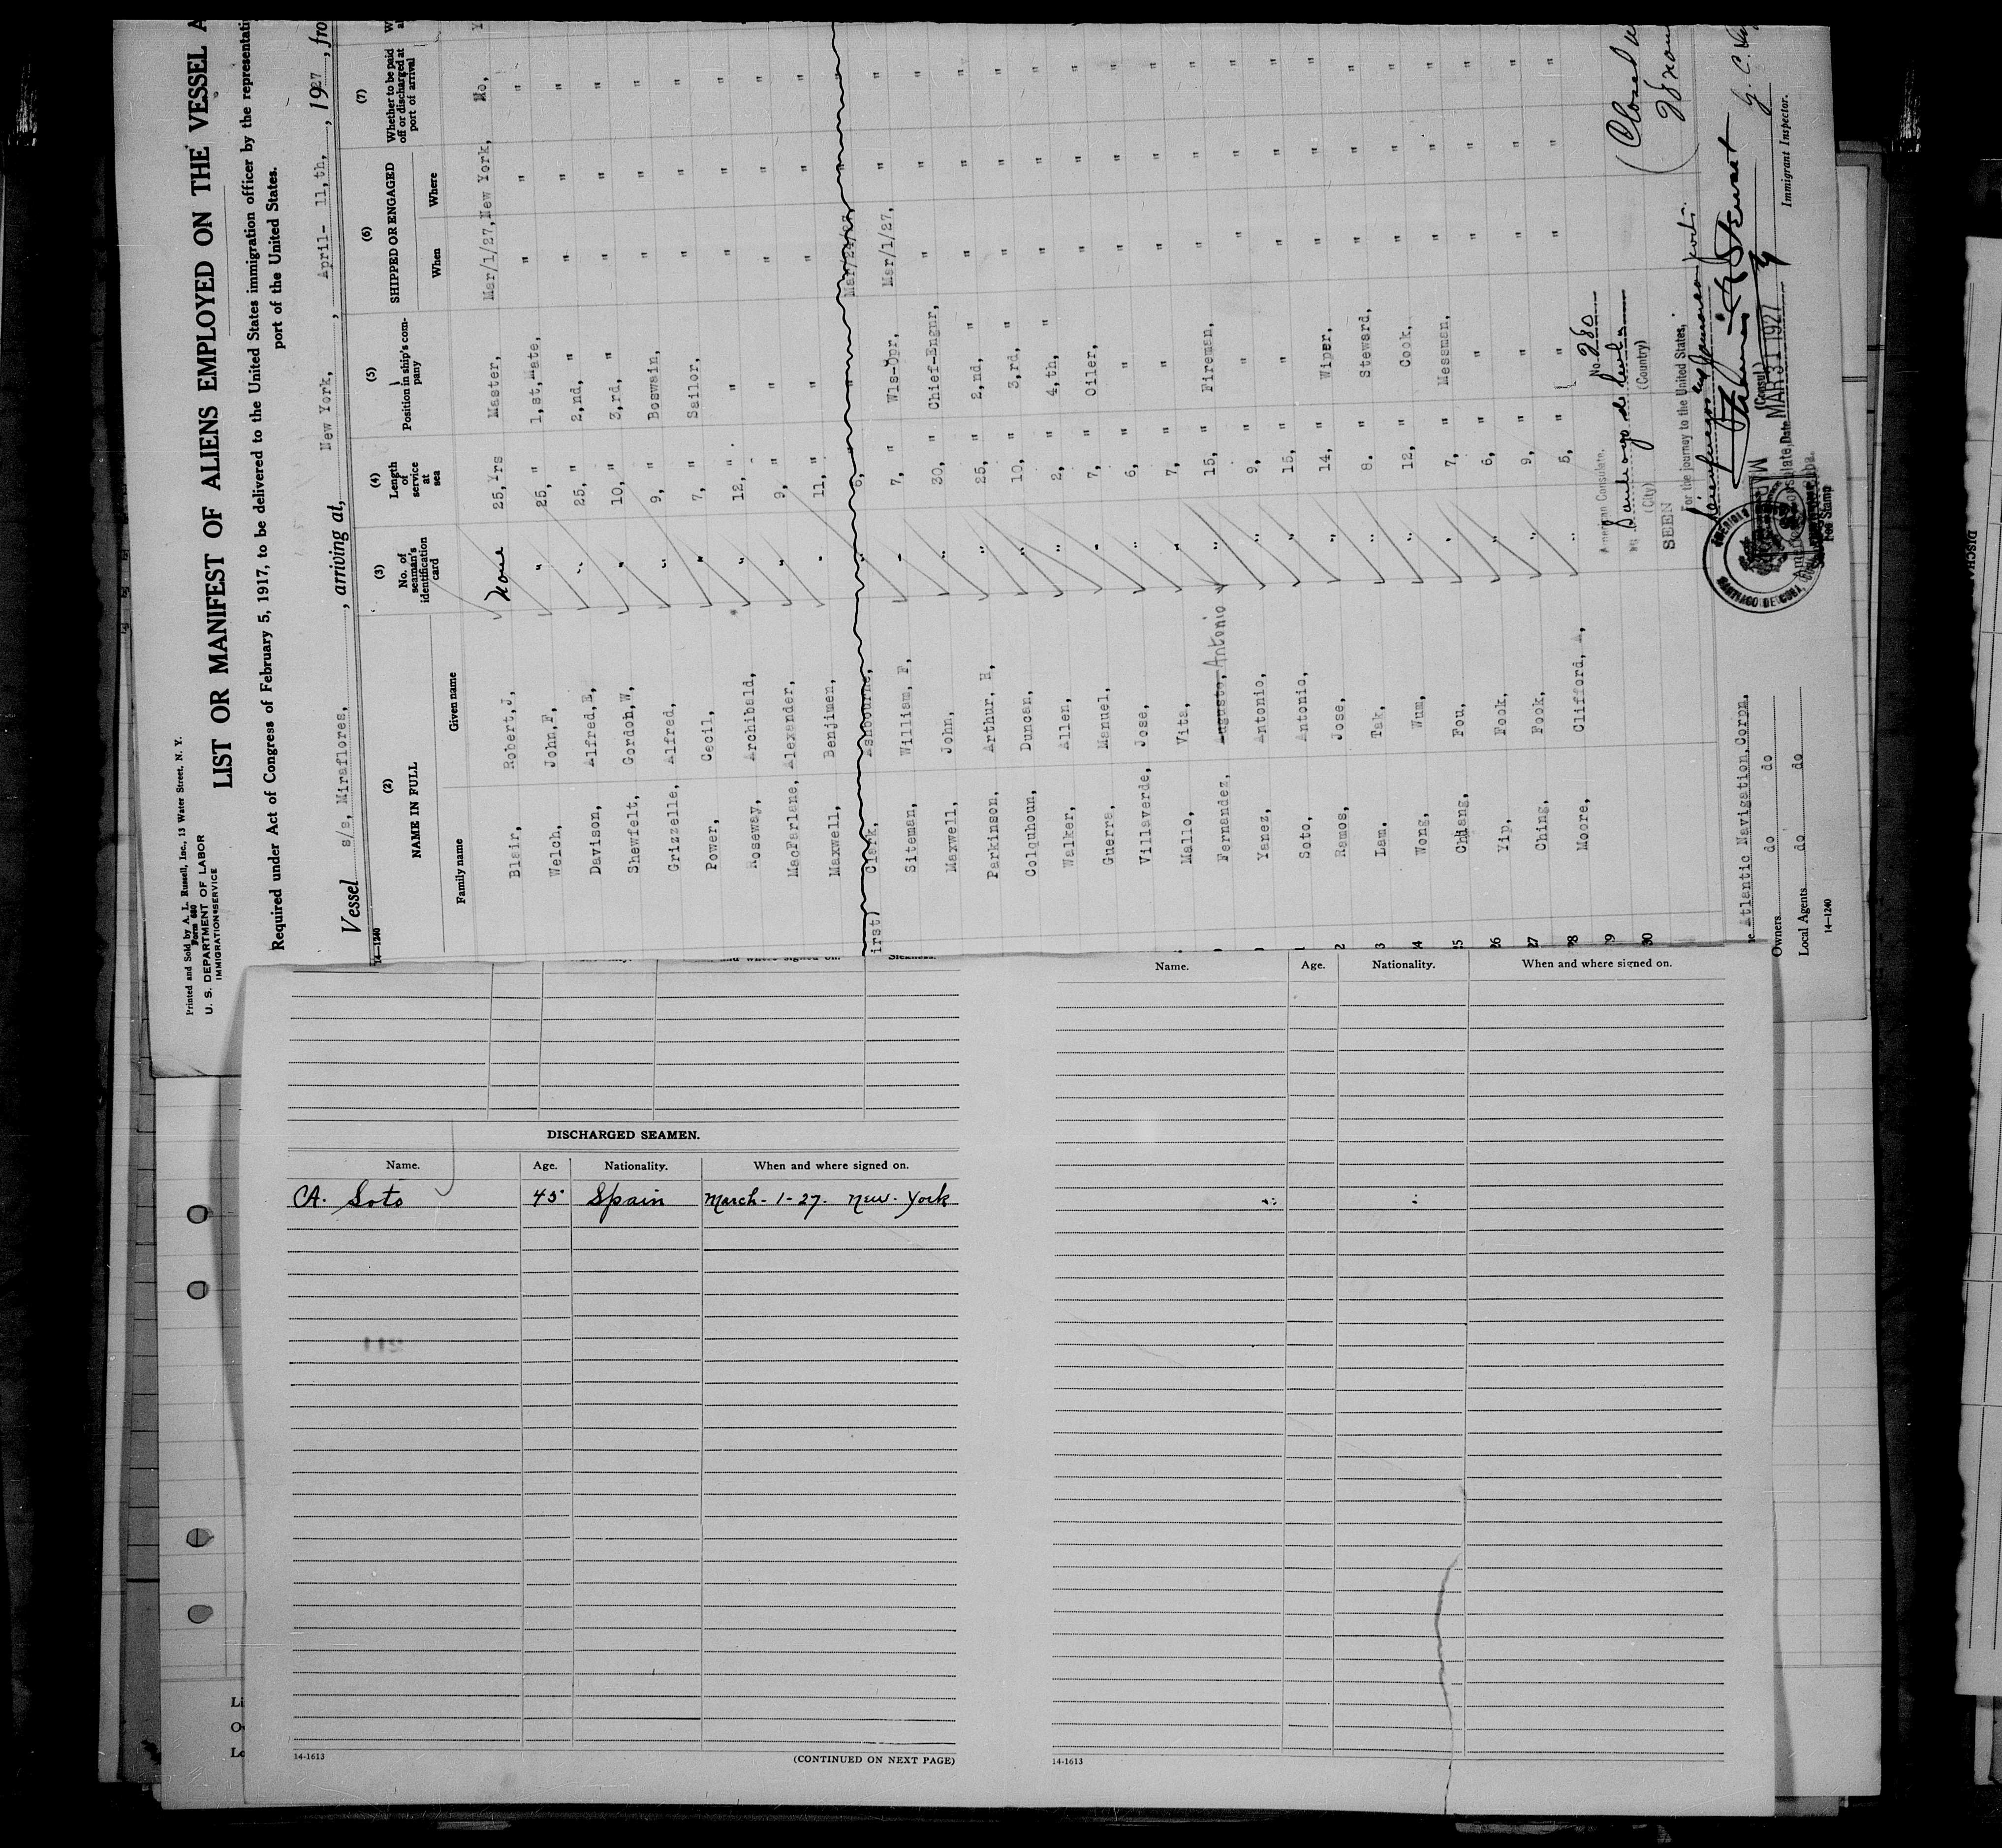 Printed and Sold by A. L. Russell, Inc., 13 Water Street, N. Y.
Form 680
U. S. DEPARTMENT OF LABOR
IMMIGRATION SERVICE
LIST OR MANIFEST OF ALIENS EMPLOYED ON THE VESSEL A
Required under Act of Congress of February 5, 1917, to be delivered to the United States immigration officer by the representati
port of the United States.
Vessel s/s, Miraflores, , arriving at, New York, , April- 11,th, , 1927 , fro
14-1240
(2) (3) (4) (5) (6) (7)
NAME IN FULL No. of seaman's identification card Length of service at sea Position in ship's company SHIPPED OR ENGAGED Whether to be paid off or discharged at port of arrival
Family name Given name When Where
Blair, Robert,J, None 25,Yrs Master, Mar/1/27, New York, No,
Welch, John,F, " 25, " 1,st,Mate, " " "
Davison, Alfred,E, " 25, " 2,nd, " " " "
Shewfelt, Gordon,W, " 10, " 3,rd, " " " "
Grizzelle, Alfred, " 9, " Boswain, " " "
Power, Cecil, " 7, " Sailor, " " "
Roseway, Archibald, " 12, " " " " "
MacFarlane, Alexander, " 9, " " " " "
Maxwell, Benjimen, " 11, " " " " "
irst) Clark, Ashbourne, " 6, " " Mar/24/27, " "
Siteman, William, F, " 7, " Wis-Opr, Mar/1/27, " "
Maxwell, John, " 30, " Chief-Engnr, " " "
Parkinson, Arthur, H, " 25, " 2,nd, " " " "
Colquhoun, Duncan, " 10, " 3,rd, " " " "
Walker, Allen, " 2, " 4,th, " " " "
Guerra, Manuel, " 7, " Oiler, " " "
Villaverde, Jose, " 6, " " " " "
Mallo, Vita, " 7, " " " " "
Fernandez, Augusto, Antonio " 15, " Fireman, " " "
Yanez, Antonio, " 9, " " " " "
Soto, Antonio, " 15, " " " " "
Ramos, Jose, " 14, " Wiper, " " "
Lam, Tak, " 8. " Steward, " " "
Wong, Wum, " 12, " Cook, " " "
Chiang, Fou, " 7, " Messman, " " "
Yip, Fook, " 6, " " " " "
Ching, Fook, " 9, " " " " "
Moore, Clifford, A, " 5, " " " " "
29
30
American Consulate, No. 280
Santiago de Cuba
(City) (Country)
SEEN
For the journey to the United States,
(Consul)
Date MAR 31 1927
SANTIAGO DE CUBA,
Fee Stamp
(Closed
Immigrant Inspector.
Atlantic Navigation,Corpn,
Owners do do
Local Agents do do
14-1240
DISCHARGED SEAMEN.
Name. Age. Nationality. When and where signed on.
A. Soto 45 Spain March-1-27. New-York
14-1613
(CONTINUED ON NEXT PAGE)
Name. Age. Nationality. When and where signed on.
14-1613